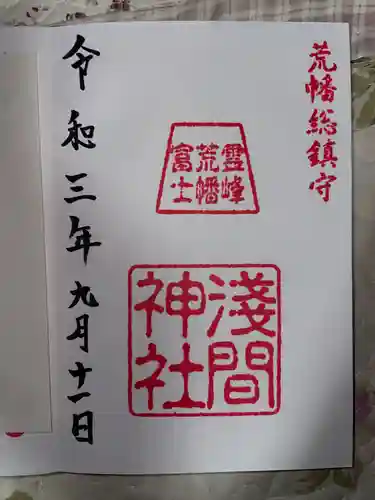 荒幡総鎮守
靈峰
荒幡
富士
淺間
神社
令和三年九月十一日